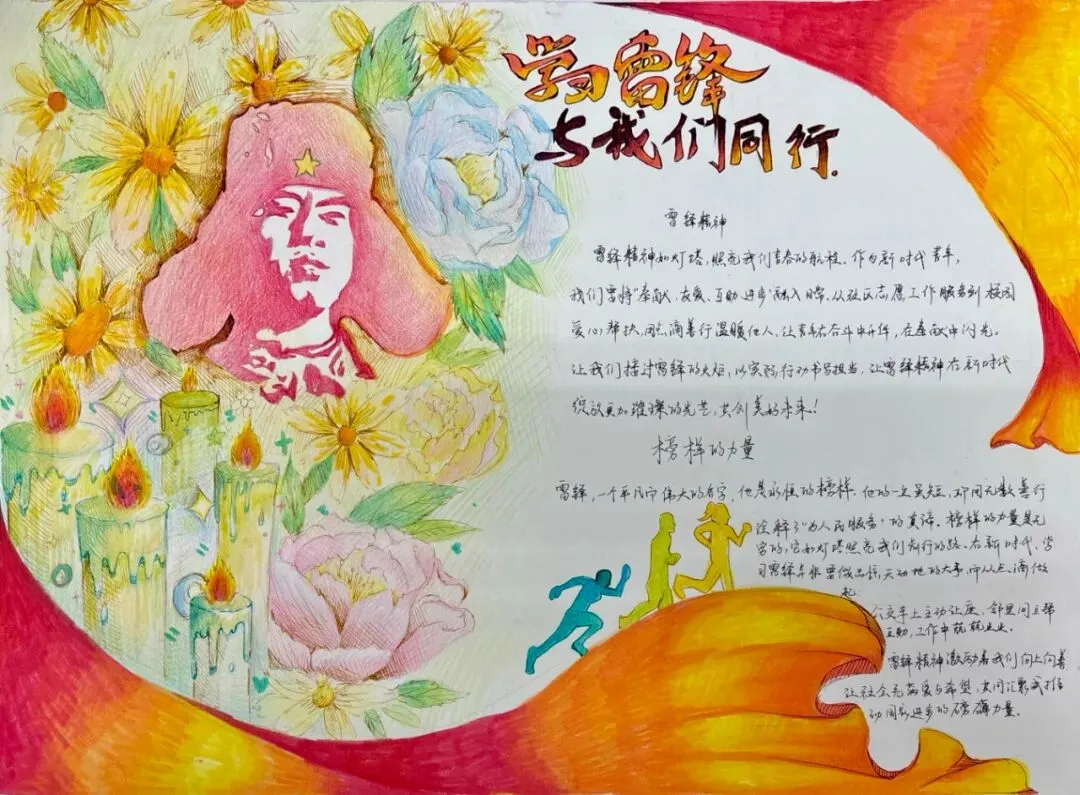 学习雷锋
与我们同行.
雷锋精神
雷锋精神如灯塔,照亮我们青春的航程。作为新时代青年,
我们要将“奉献、友爱、互助、进步”融入日常,从社区志愿工作服务到校园
爱心帮扶,用点滴善行温暖他人,让青春在奋斗中升华,在奉献中闪光。
让我们接过雷锋的火炬,以实际行动书写担当,让雷锋精神在新时代
绽放更加璀璨的光芒,共创美好未来!
榜样的力量
雷锋,一个平凡而伟大的名字,他是永恒的榜样。他的一生虽短,却用无数善行
诠释了“为人民服务”的真谛。榜样的力量是无
穷的,它如灯塔照亮我们前行的路。在新时代,学
习雷锋 天动地的大事,而从点滴做
起
公交车上主动让座,邻里间互帮
互助,工作中兢兢业业。
雷锋精神激励着我们向上向善
让社会充满爱与希望,共同汇聚成推
动国家进步的磅礴力量。